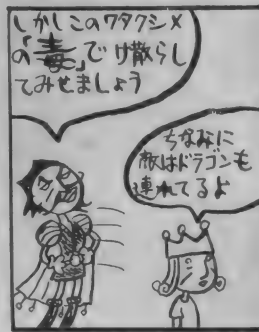 しかしこのワタクシメ
の「毒」でけ散らし
てみせましょう
ちなみに
敵はドラゴンも
連れてるよ